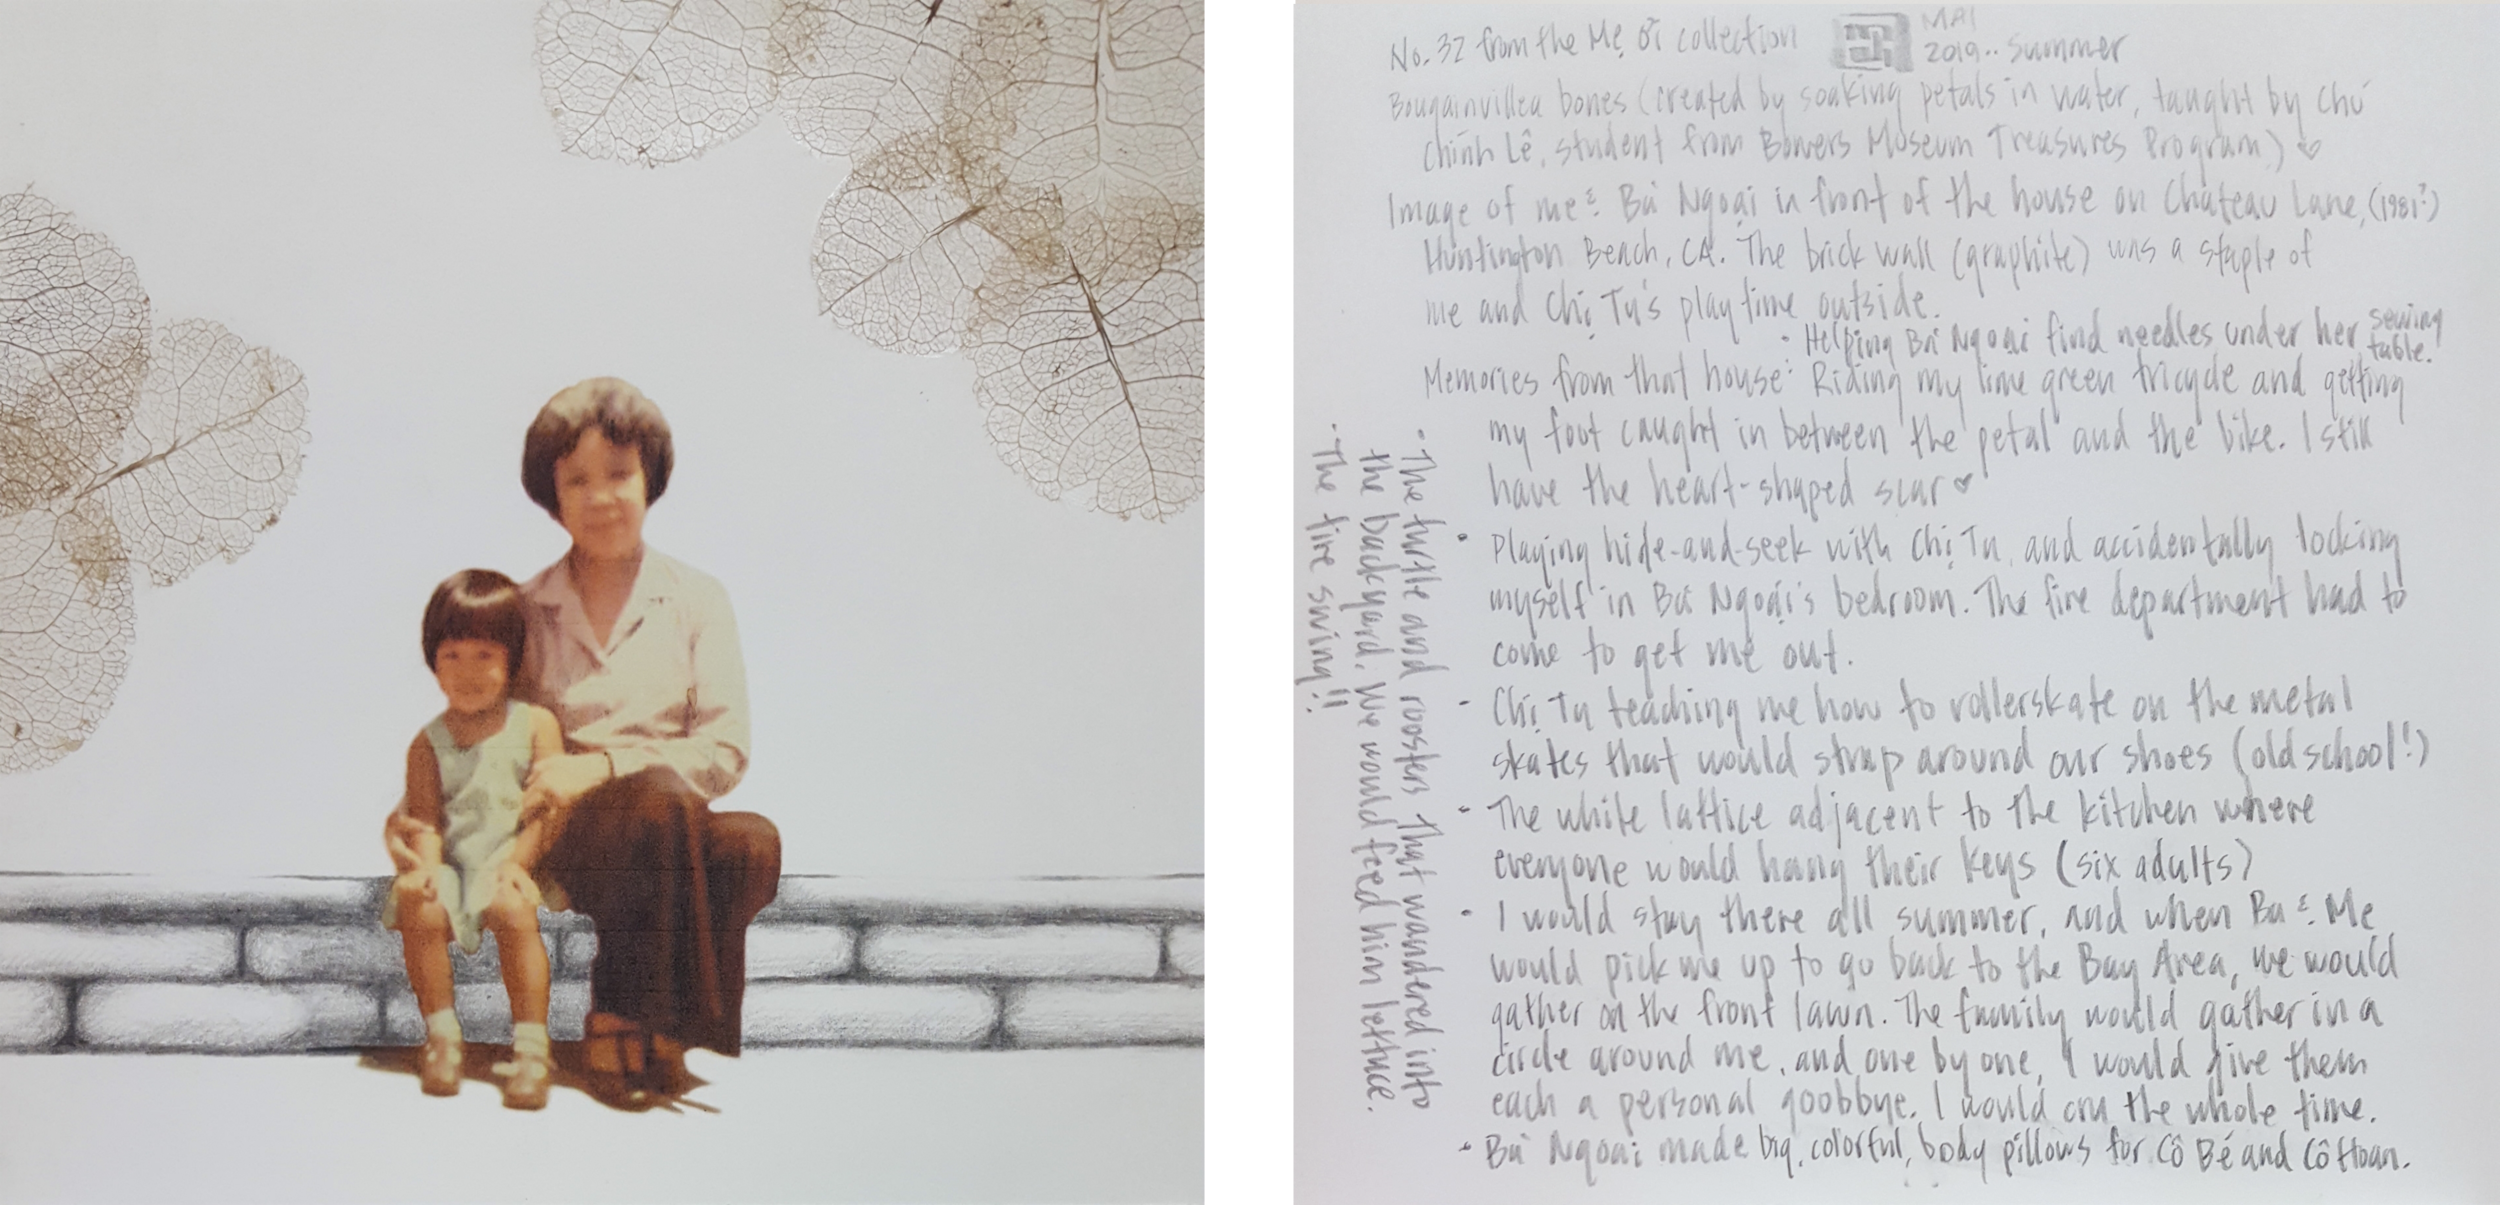 No. 32 from the Mẹ ơi collection
MAI
2019.. Summer
Bougainvillea bones (created by soaking petals in water, taught by Chú
Chính Lê, student from Bowers Museum Treasures Program) ♡
Image of me & Bà Ngoại in front of the house on Chateau Lane, (1981?)
Huntington Beach, CA. The brick wall (graphite) was a staple of
me and Chị Tu's playtime outside.
• Helping Bà Ngoại find needles under her sewing table.
Memories from that house: Riding my lime green tricycle and getting
my foot caught in between the petal and the bike. I still
have the heart-shaped scar ♥
• Playing hide-and-seek with Chị Tu, and accidentally locking
myself in Bà Ngoại's bedroom. The fire department had to
come to get me out.
- Chị Tu teaching me how to rollerskate on the metal
skates that would strap around our shoes (old school!)
• The white lattice adjacent to the kitchen where
everyone would hang their keys (six adults)
• I would stay there all summer, and when Ba & Me
would pick me up to go back to the Bay Area, we would
gather on the front lawn. The family would gather in a
circle around me, and one by one, I would give them
each a personal goobbye. I would cry the whole time.
• Bà Ngoại made big, colorful, body pillows for Cô Bé and Cô Hoan.
• The turtle and roosters that wandered into
the backyard. We would feed him lettuce.
• The tire swing!!